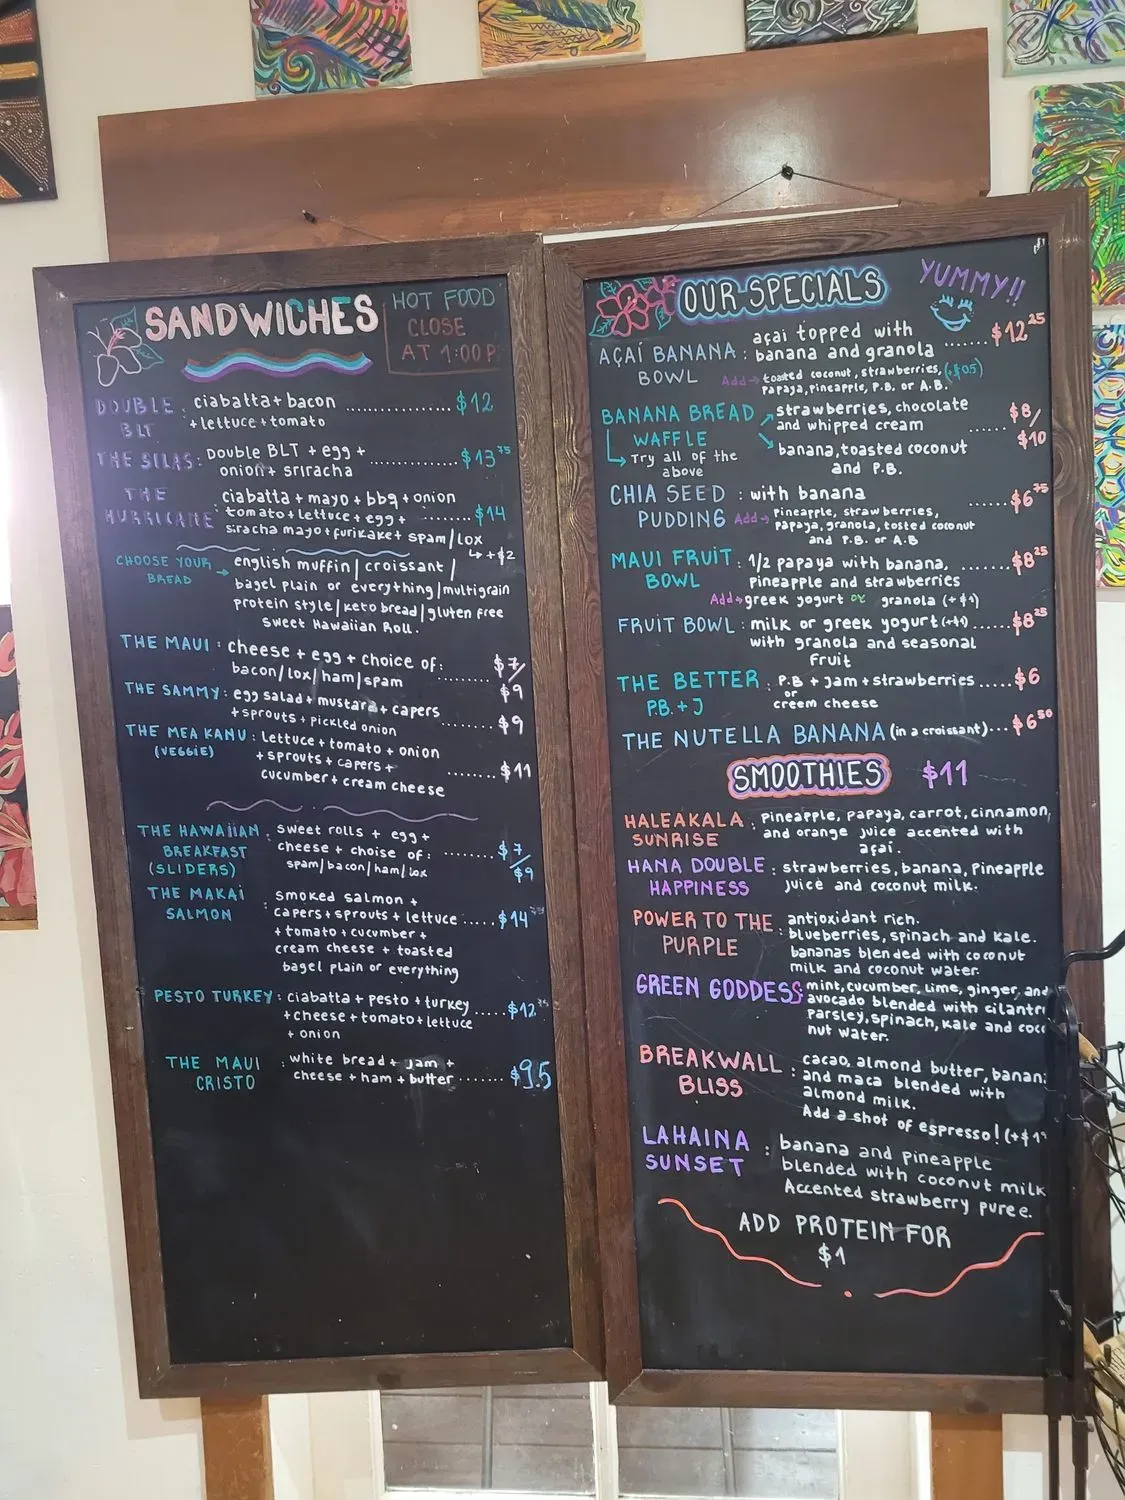 SANDWICHES
HOT FOOD
CLOSE
AT 1:00 P
DOUBLE : ciabatta + bacon ................ $12
BLT + lettuce + tomato
THE SILAS: Double BLT + egg + ............. $13 75
onion + sriracha
THE : ciabatta + mayo + bbq + onion
HURRICANE tomato + lettuce + egg + ........ $14
siracha mayo + furikake + spam/lox
↳ +$2
CHOOSE YOUR BREAD → english muffin | croissant |
bagel plain or everything | multigrain
protein style | keto bread | gluten free
sweet Hawaiian Roll.
THE MAUI : cheese + egg + choice of: ........ $7/
bacon/lox/ham/spam $9
THE SAMMY : egg salad + mustard + capers ....... $9
+ sprouts + pickled onion
THE MEA KANU : lettuce + tomato + onion
(VEGGIE) + sprouts + capers + ........ $11
cucumber + cream cheese
THE HAWAIIAN : sweet rolls + egg +
BREAKFAST cheese + choise of: ........ $7/
(SLIDERS) spam/bacon/ham/lox $9
THE MAKAI : smoked salmon +
SALMON capers + sprouts + lettuce ..... $14
+ tomato + cucumber +
cream cheese + toasted
bagel plain or everything
PESTO TURKEY : ciabatta + pesto + turkey ..... $12 75
+ cheese + tomato + lettuce
+ onion
THE MAUI : white bread + jam +
CRISTO cheese + ham + butter ....... $9.5
OUR SPECIALS
YUMMY!!
AÇAÍ BANANA : açai topped with ....... $12 25
BOWL banana and granola
Add → toasted coconut, strawberries,
papaya, pineapple, P.B. or A.B.
BANANA BREAD ↗ strawberries, chocolate $8/
WAFFLE and whipped cream ...... $10
↳ Try all of the above ↘ banana, toasted coconut
and P.B.
CHIA SEED : with banana ...... $6 75
PUDDING Add → Pineapple, strawberries,
papaya, granola, tosted coconut
and P.B. or A.B
MAUI FRUIT : 1/2 papaya with banana, ....... $8 25
BOWL pineapple and strawberries
Add → greek yogurt or granola (+$1)
FRUIT BOWL : milk or greek yogurt (+$1) ...... $8 25
with granola and seasonal
fruit
THE BETTER : P.B + jam + strawberries ..... $6
P.B. + J or
creem cheese
THE NUTELLA BANANA (in a croissant) ... $6 50
SMOOTHIES $11
HALEAKALA : pineapple, papaya, carrot, cinnamon,
SUNRISE and orange juice accented with
açaí.
HANA DOUBLE : strawberries, banana, Pineapple
HAPPINESS juice and coconut milk.
POWER TO THE : antioxidant rich.
PURPLE blueberries, spinach and kale.
bananas blended with coconut
milk and coconut water.
GREEN GODDESS: mint, cucumber, lime, ginger, and
avocado blended with cilantr
parsley, spinach, kale and coco
nut water.
BREAKWALL : cacao, almond butter, banan
BLISS and maca blended with
almond milk.
Add a shot of espresso! (+$1
LAHAINA : banana and pineapple
SUNSET blended with coconut milk
Accented strawberry puree.
ADD PROTEIN FOR
$1